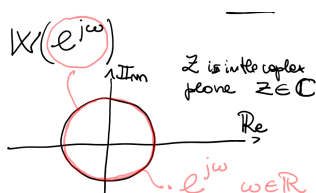 W(e^{jω})
Im
Z is in the complex
plane Z ∈ ℂ
Re
e^{jω} ω ∈ ℝ